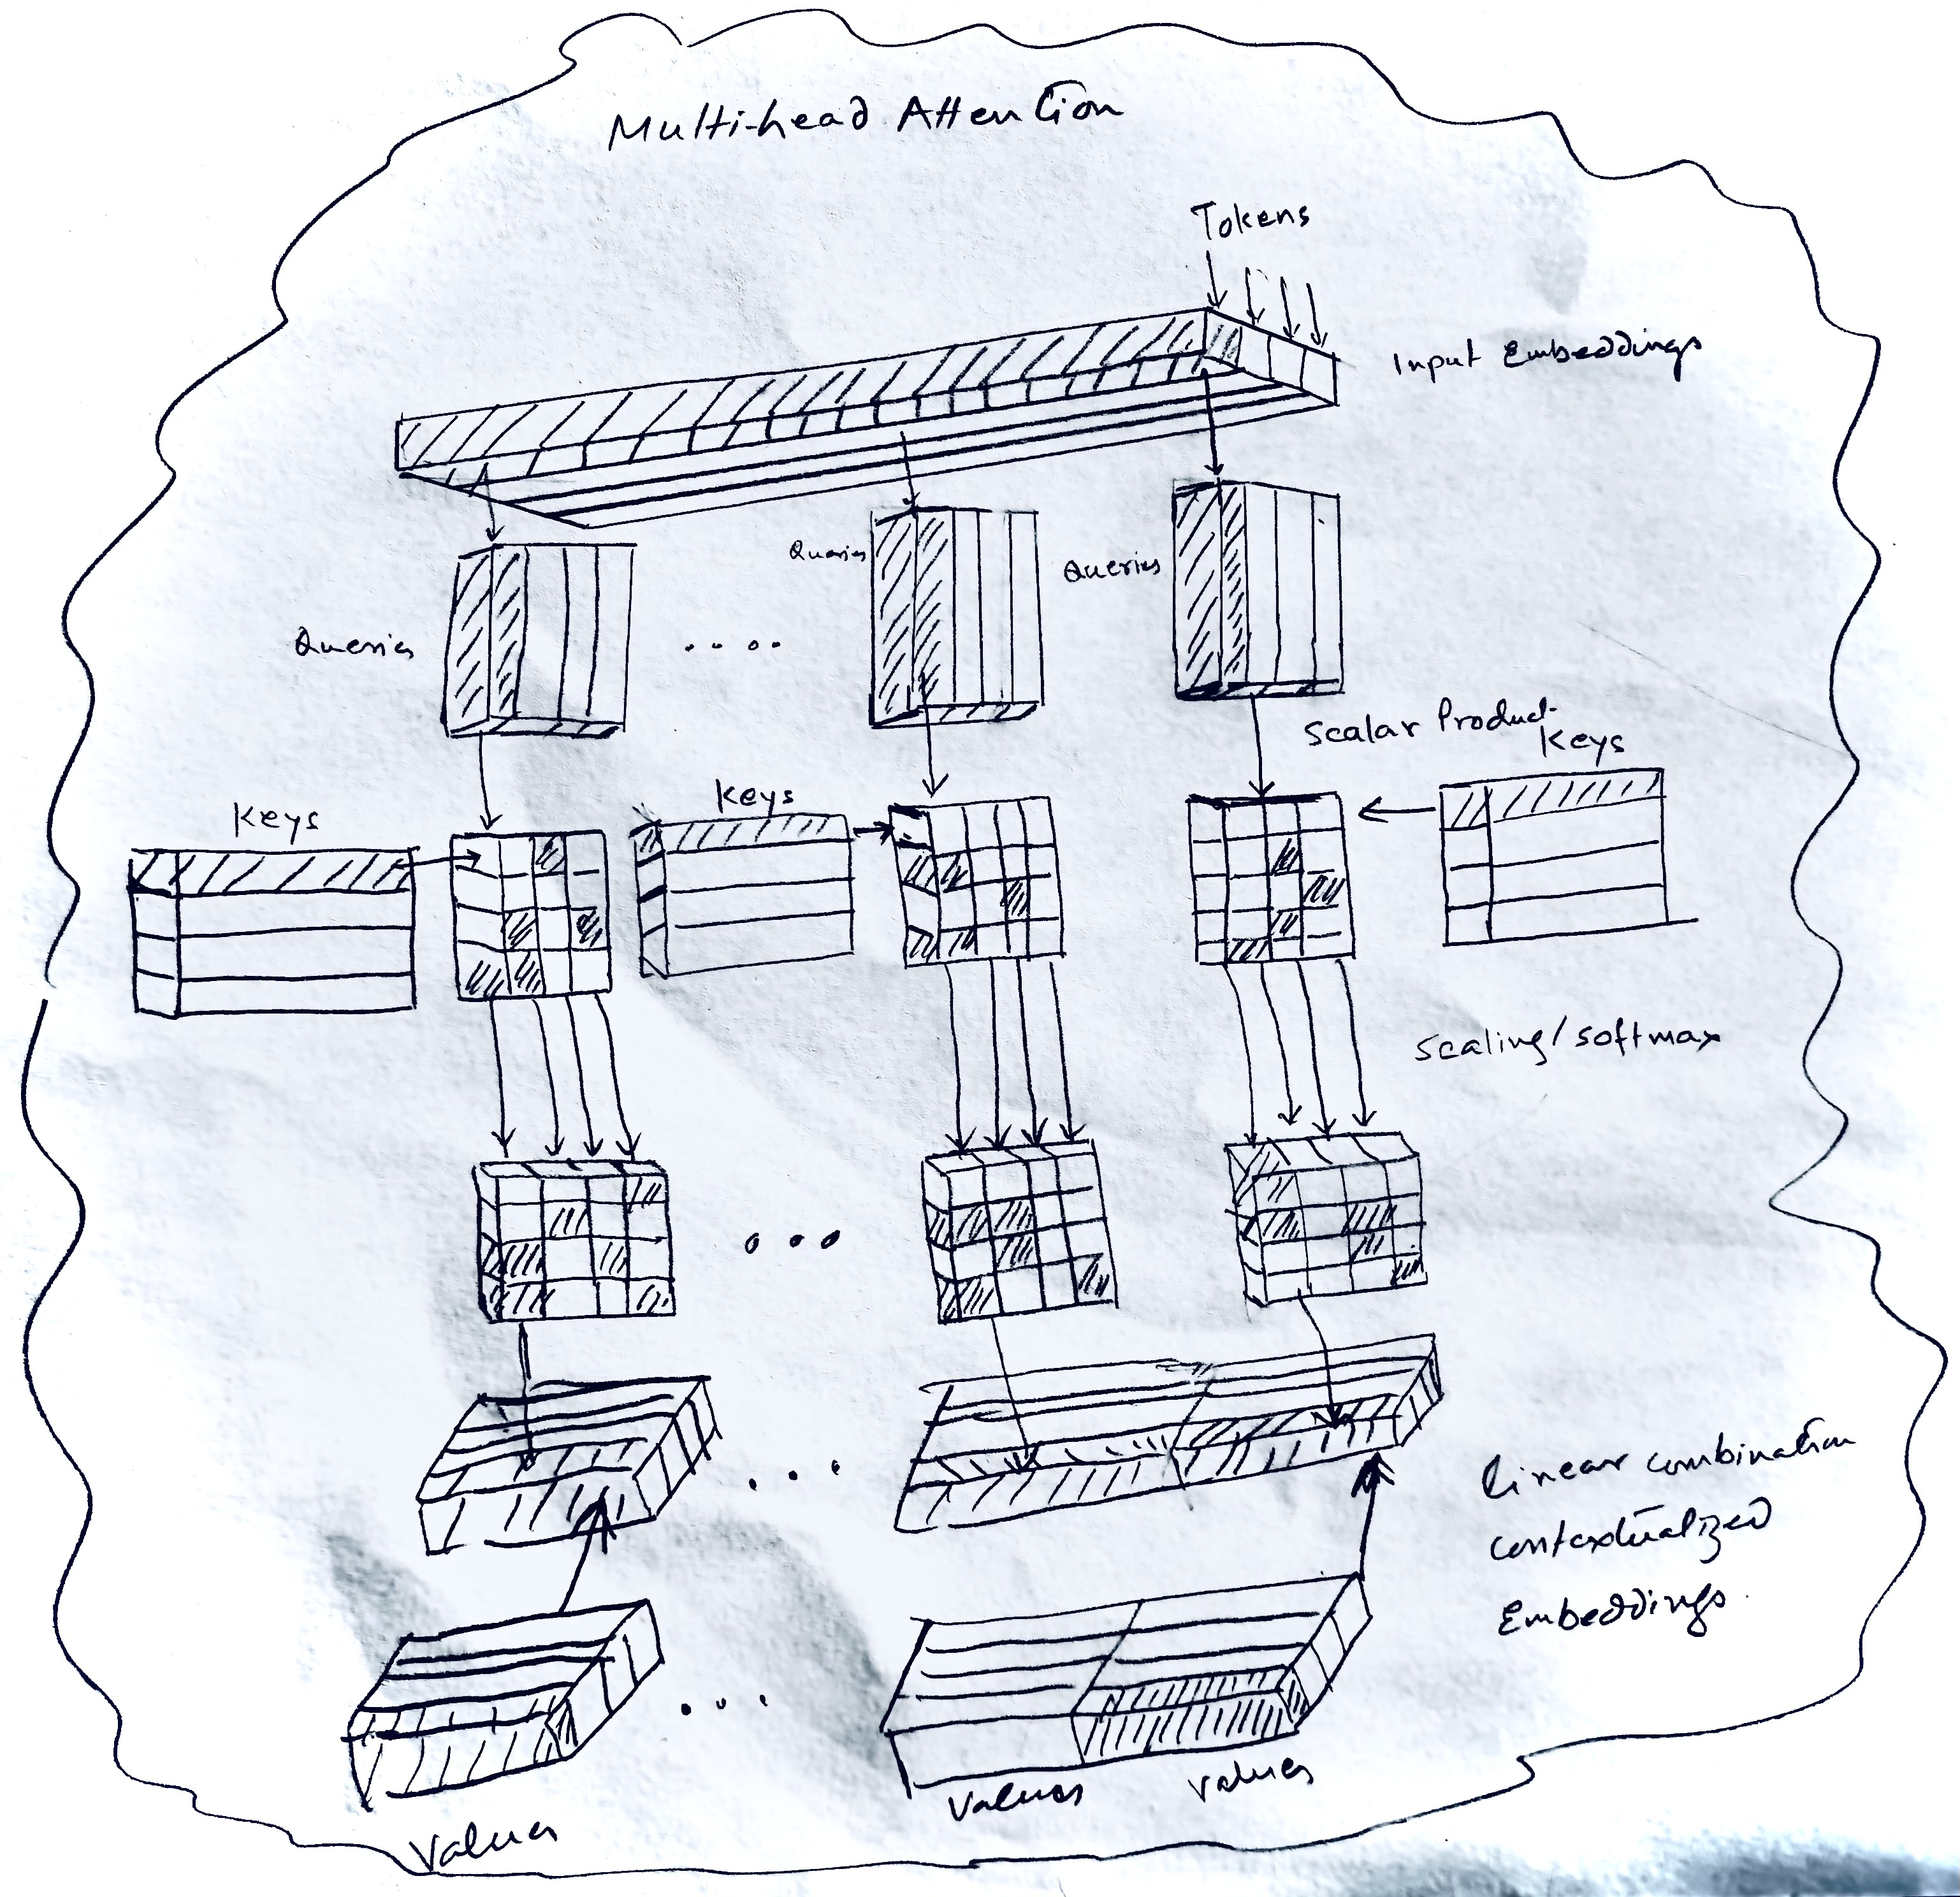 Multi-head Attention
Tokens
Input Embeddings
Queries
Queries
Queries
Scalar Product
Keys
Keys
Keys
Scaling/softmax
linear combination
contextualized
Embeddings
Values
Values
Values